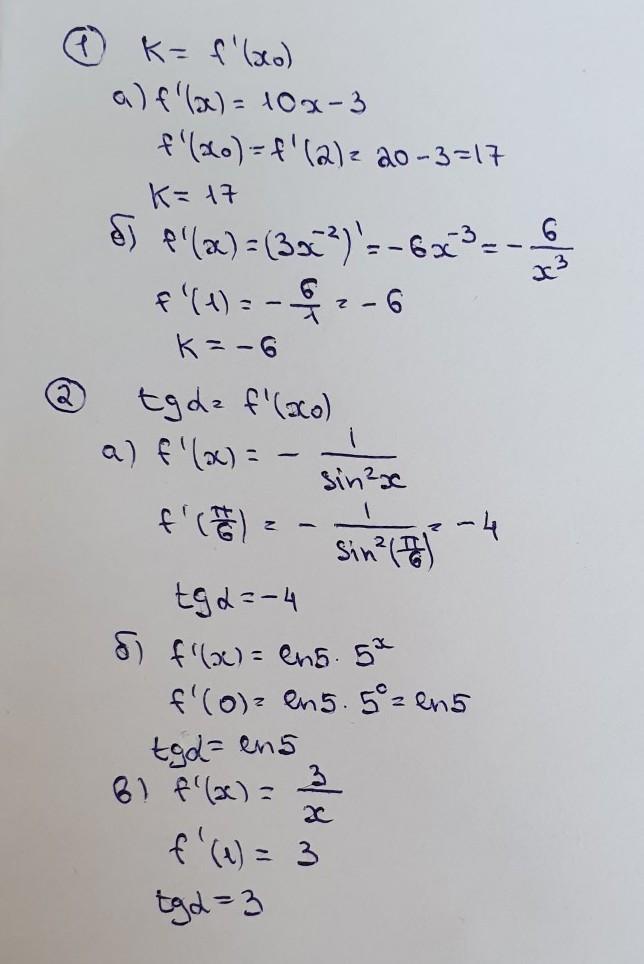 ① K = f'(x₀)
а) f'(x) = 10x - 3
f'(x₀) = f'(2) = 20 - 3 = 17
K = 17
б) f'(x) = (3x⁻²)' = -6x⁻³ = - 6/x³
f'(1) = - 6/1 = -6
K = -6
② tg α = f'(x₀)
а) f'(x) = - 1/sin²x
f'(π/6) = - 1/sin²(π/6) = -4
tg α = -4
б) f'(x) = ln5 · 5ˣ
f'(0) = ln5 · 5⁰ = ln5
tg α = ln5
в) f'(x) = 3/x
f'(1) = 3
tg α = 3